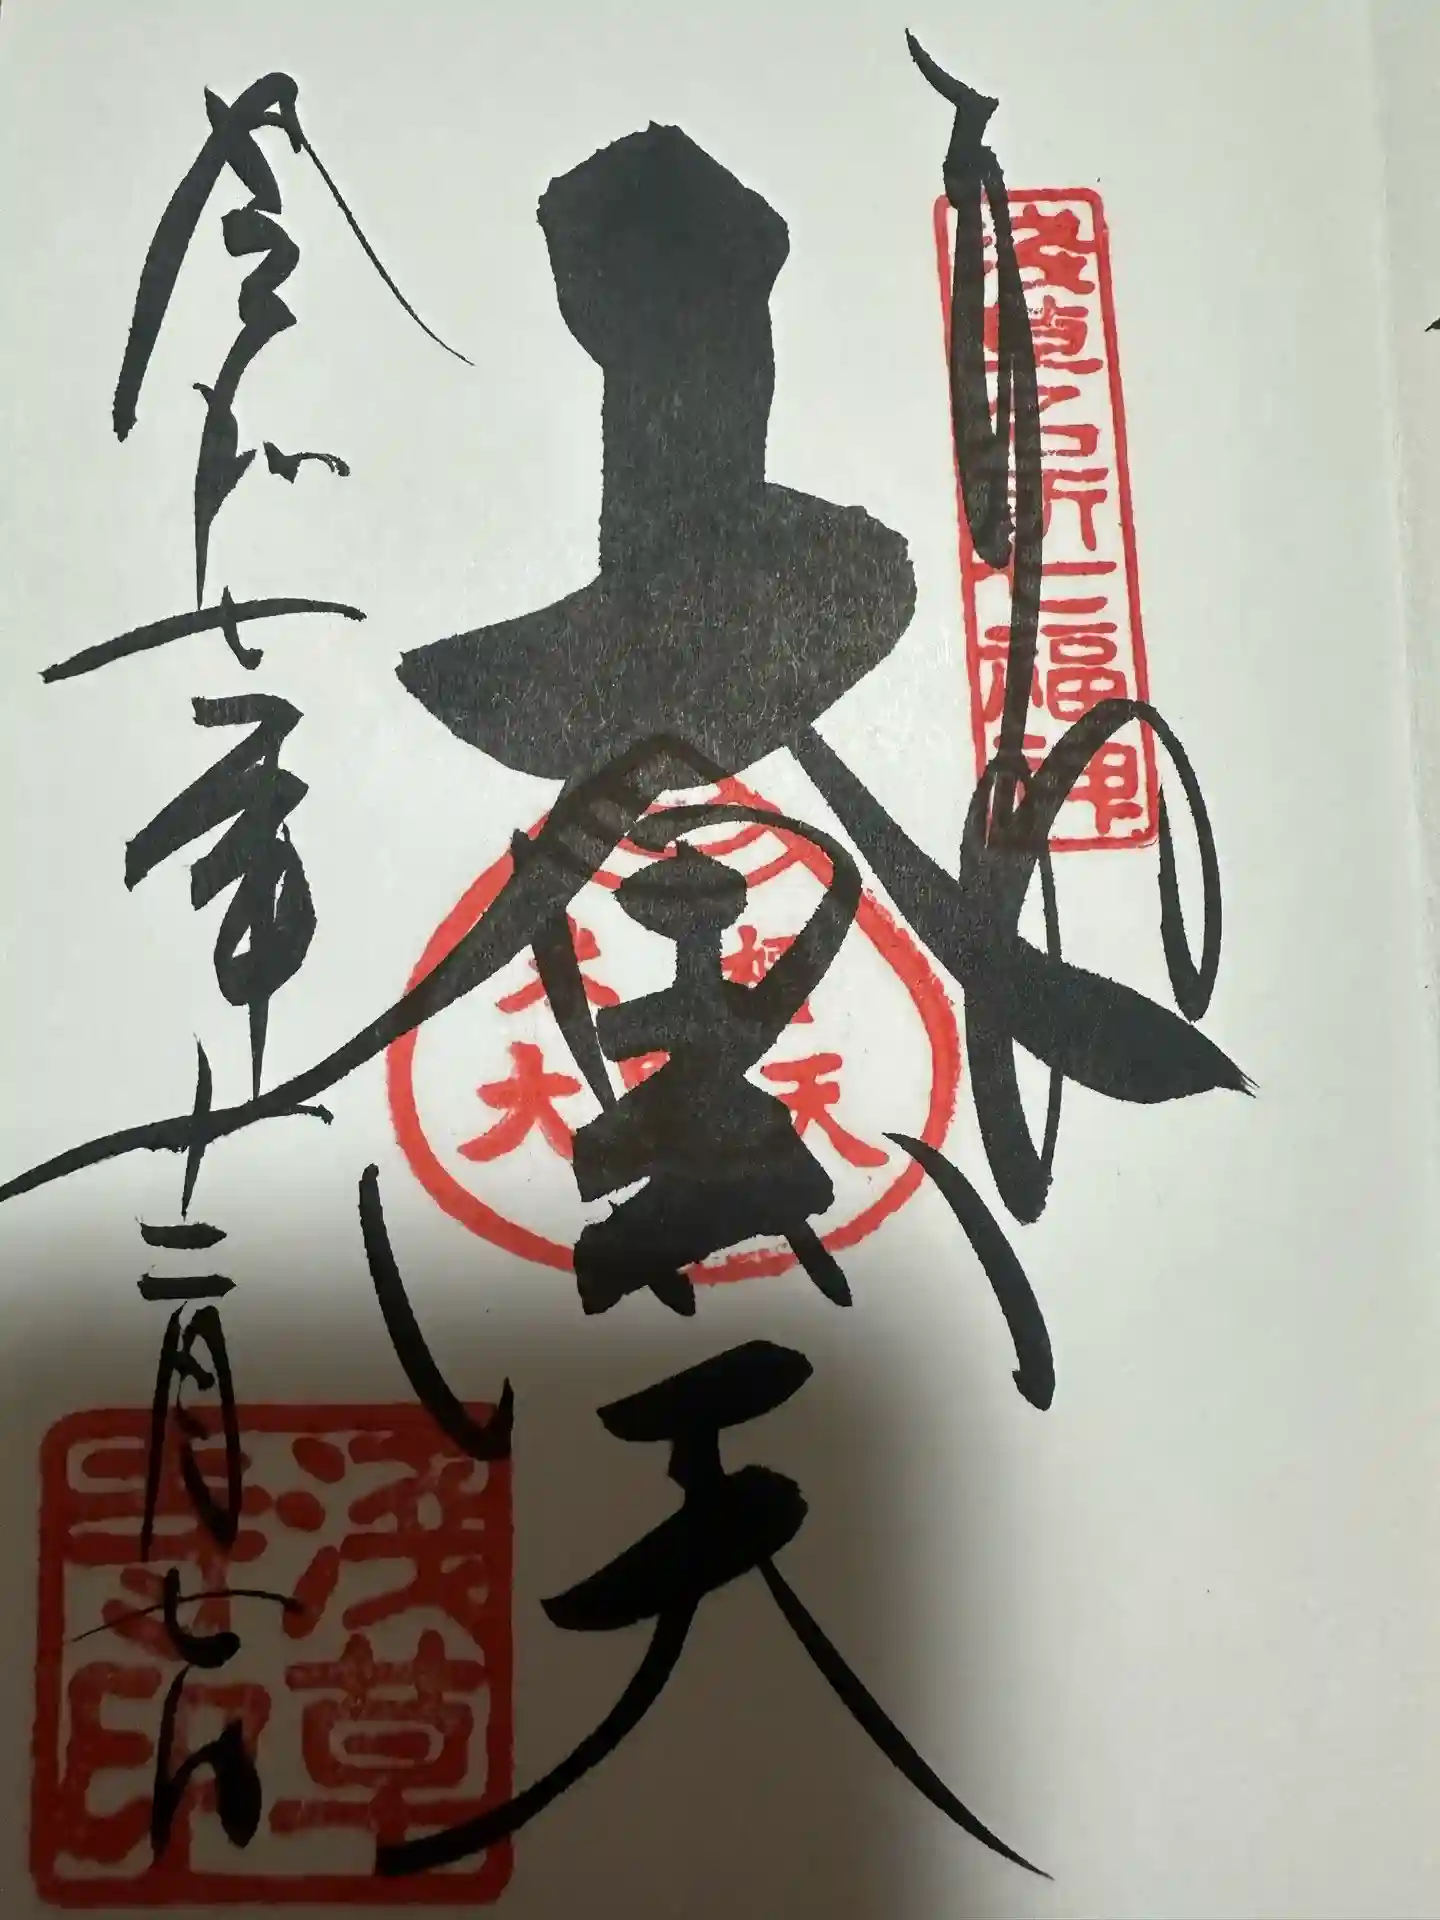 奉拝
浅草名所七福神
大黒天
米
大
令和七年十二月七日
浅草
寺印